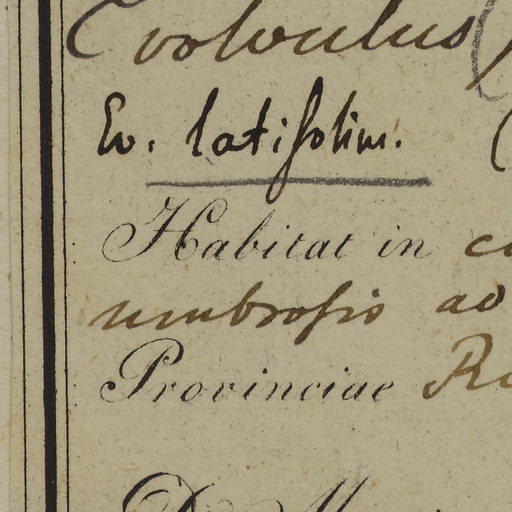 Evolvulus
Ev. latifolius.
Habitat in
umbrosis ad
Provinciae
D. M